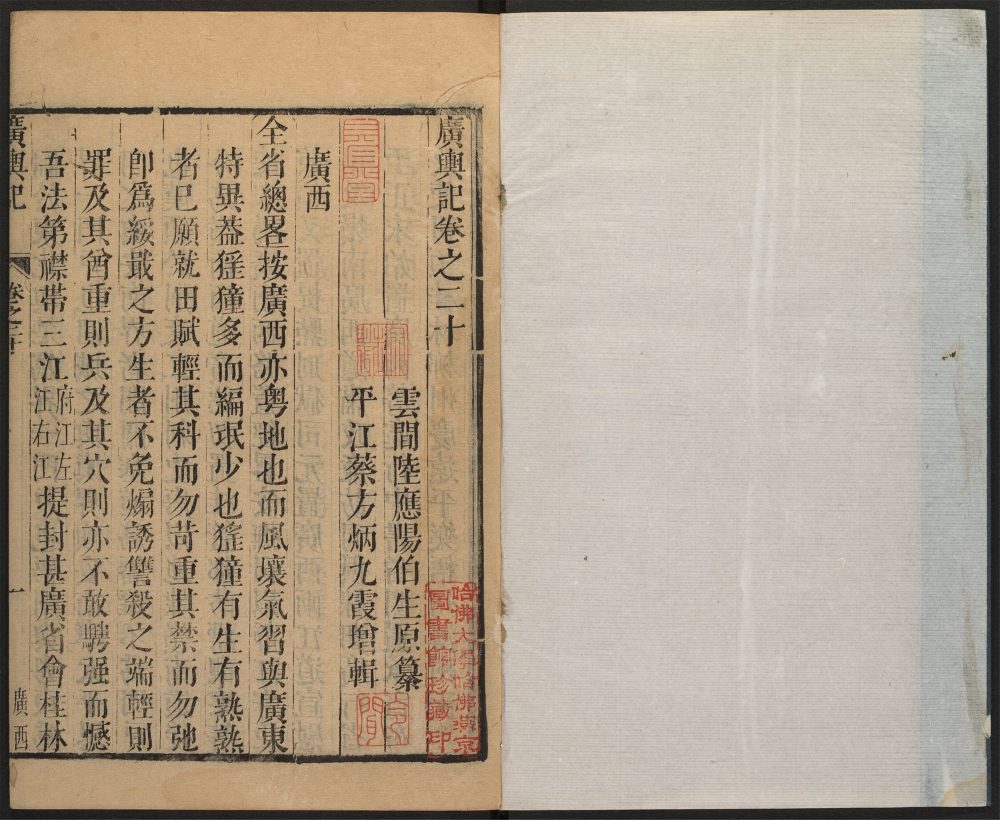 廣輿記卷之二十
雲間陸應陽伯生原纂
平江蔡方炳九霞增輯
廣西
全省總畧按廣西亦粤地也而風壤氣習與廣東
特異葢猺獞多而編珉少也猺獞有生有熟熟
者巳願就田賦輕其科而勿苛重其禁而勿弛
卽爲綏戢之方生者不免煽誘讐殺之端輕則
罪及其酋重則兵及其穴則亦不敢騁强而憾
吾法第襟帶三江府江左江右江提封甚廣省會桂林
廣輿記
卷之二十
一
廣西
哈佛大學哈佛燕京
圖書館珍藏印